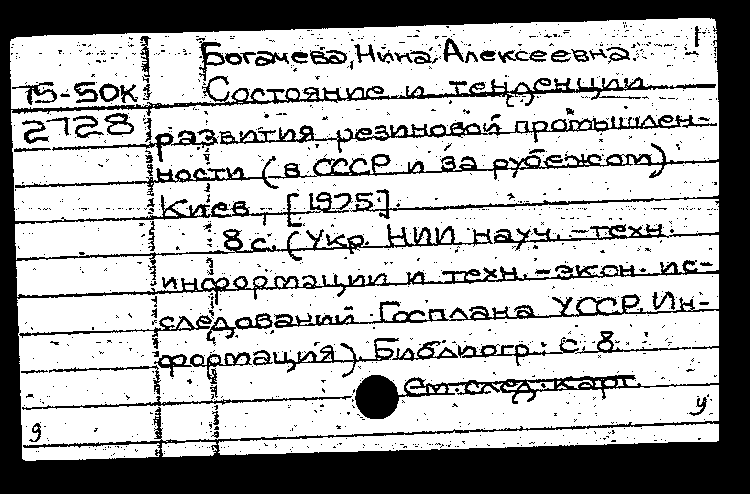 1
Богачева, Нина Алексеевна.
75-50к Состояние и тенденции
2728 развития резиновой промышлен-
ности (в СССР и за рубежом).
Киев, [1975].
8 с. (Укр. НИИ науч.-техн.
информации и техн.-экон. ис-
следований Госплана УССР. Ин-
формация). Библиогр.: с. 8.
См. след. карт.
у
9